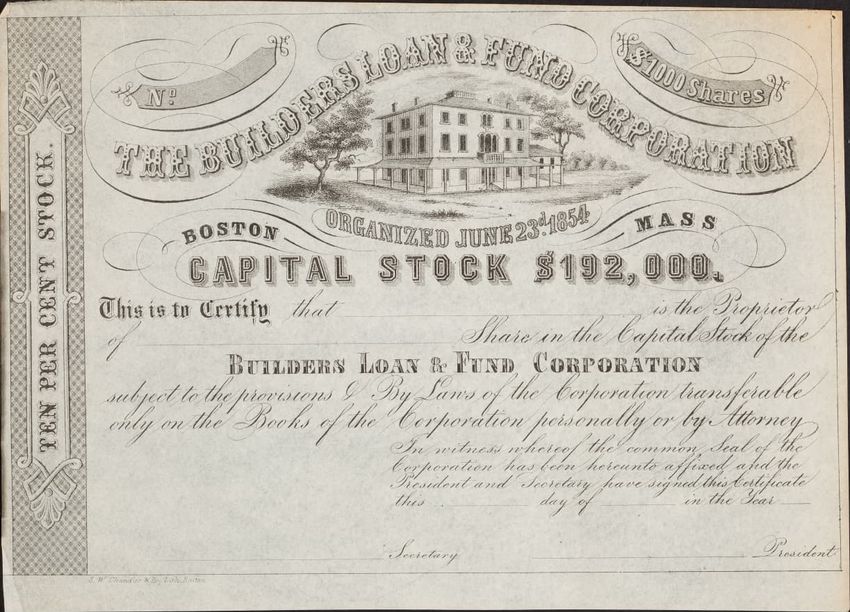 Nº
$1000 Shares
THE BUILDERS LOAN & FUND CORPORATION
ORGANIZED JUNE 23d. 1854
BOSTON MASS
CAPITAL STOCK $192,000.
This is to Certify that is the Proprietor
of Share in the Capital Stock of the
BUILDERS LOAN & FUND CORPORATION
subject to the provisions & By Laws of the Corporation transferable
only on the Books of the Corporation personally or by Attorney
In witness whereof the common Seal of the
Corporation has been hereunto affixed and the
President and Secretary have signed this Certificate
this day of in the Year
Secretary President
TEN PER CENT STOCK.
S. W. Chandler & Bro. Lith. Boston